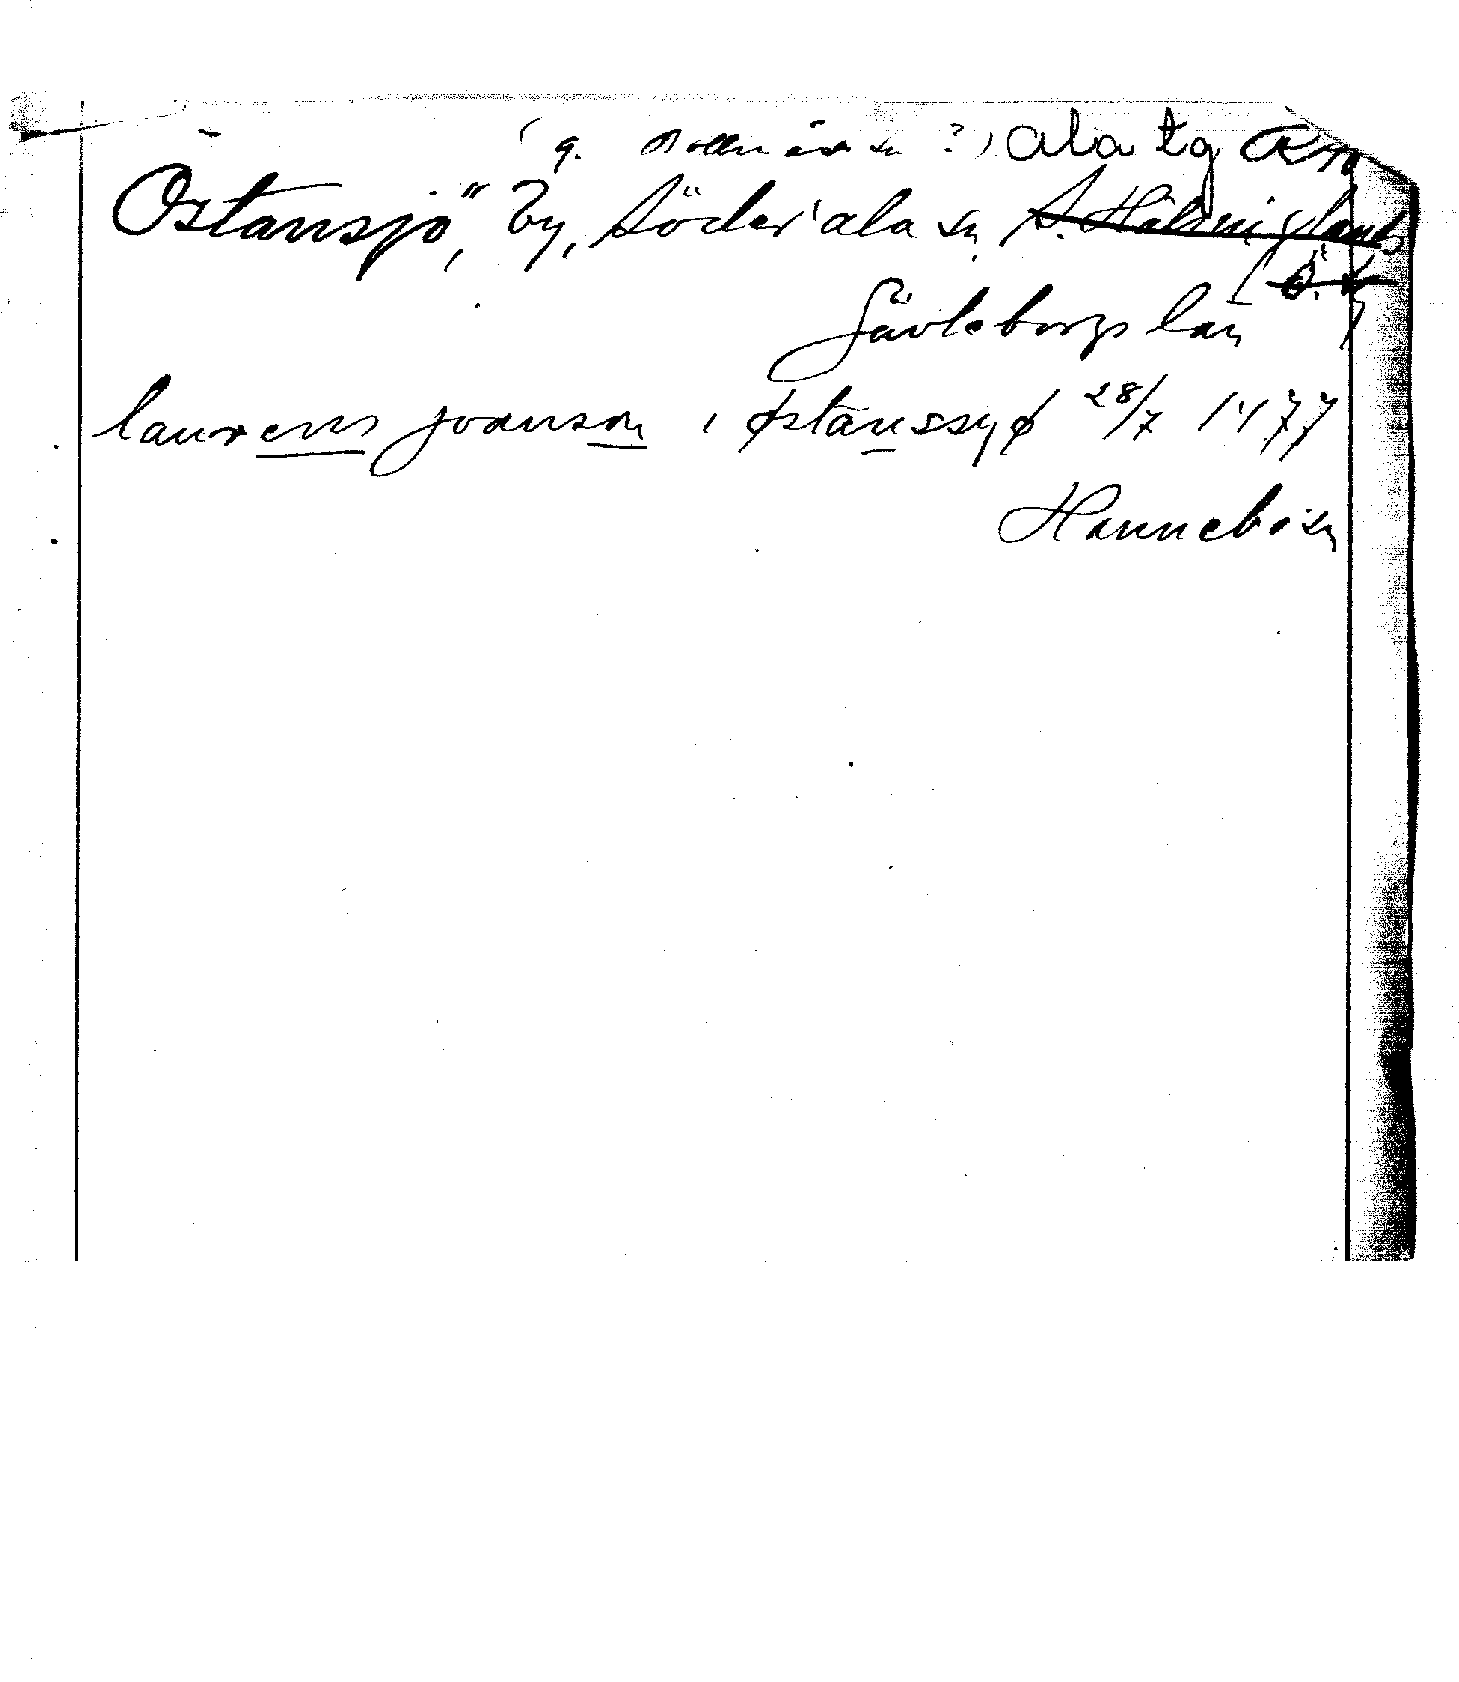 ( q. Bollnäs sn ? ) Ala tg
Östansjö, by, Söder'ala sn S. Hälsinglands
Gävleborgs län
laurens joansson i østanssyø 28/7 1477
Hannebo sn